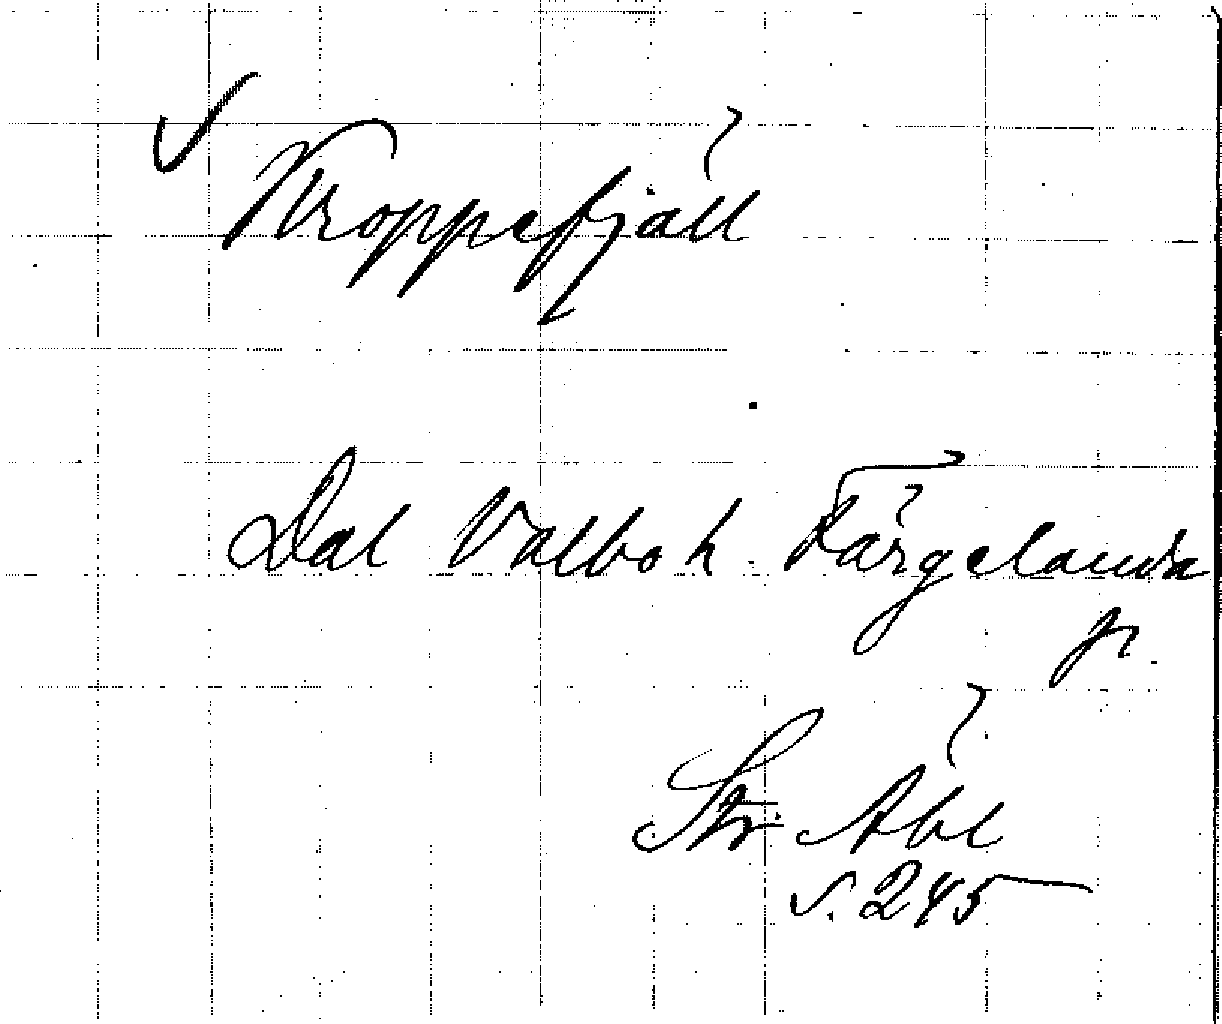 Kroppefjäll
Dal Valbo h. Färgelanda
sn.
Str Åbl
s. 245